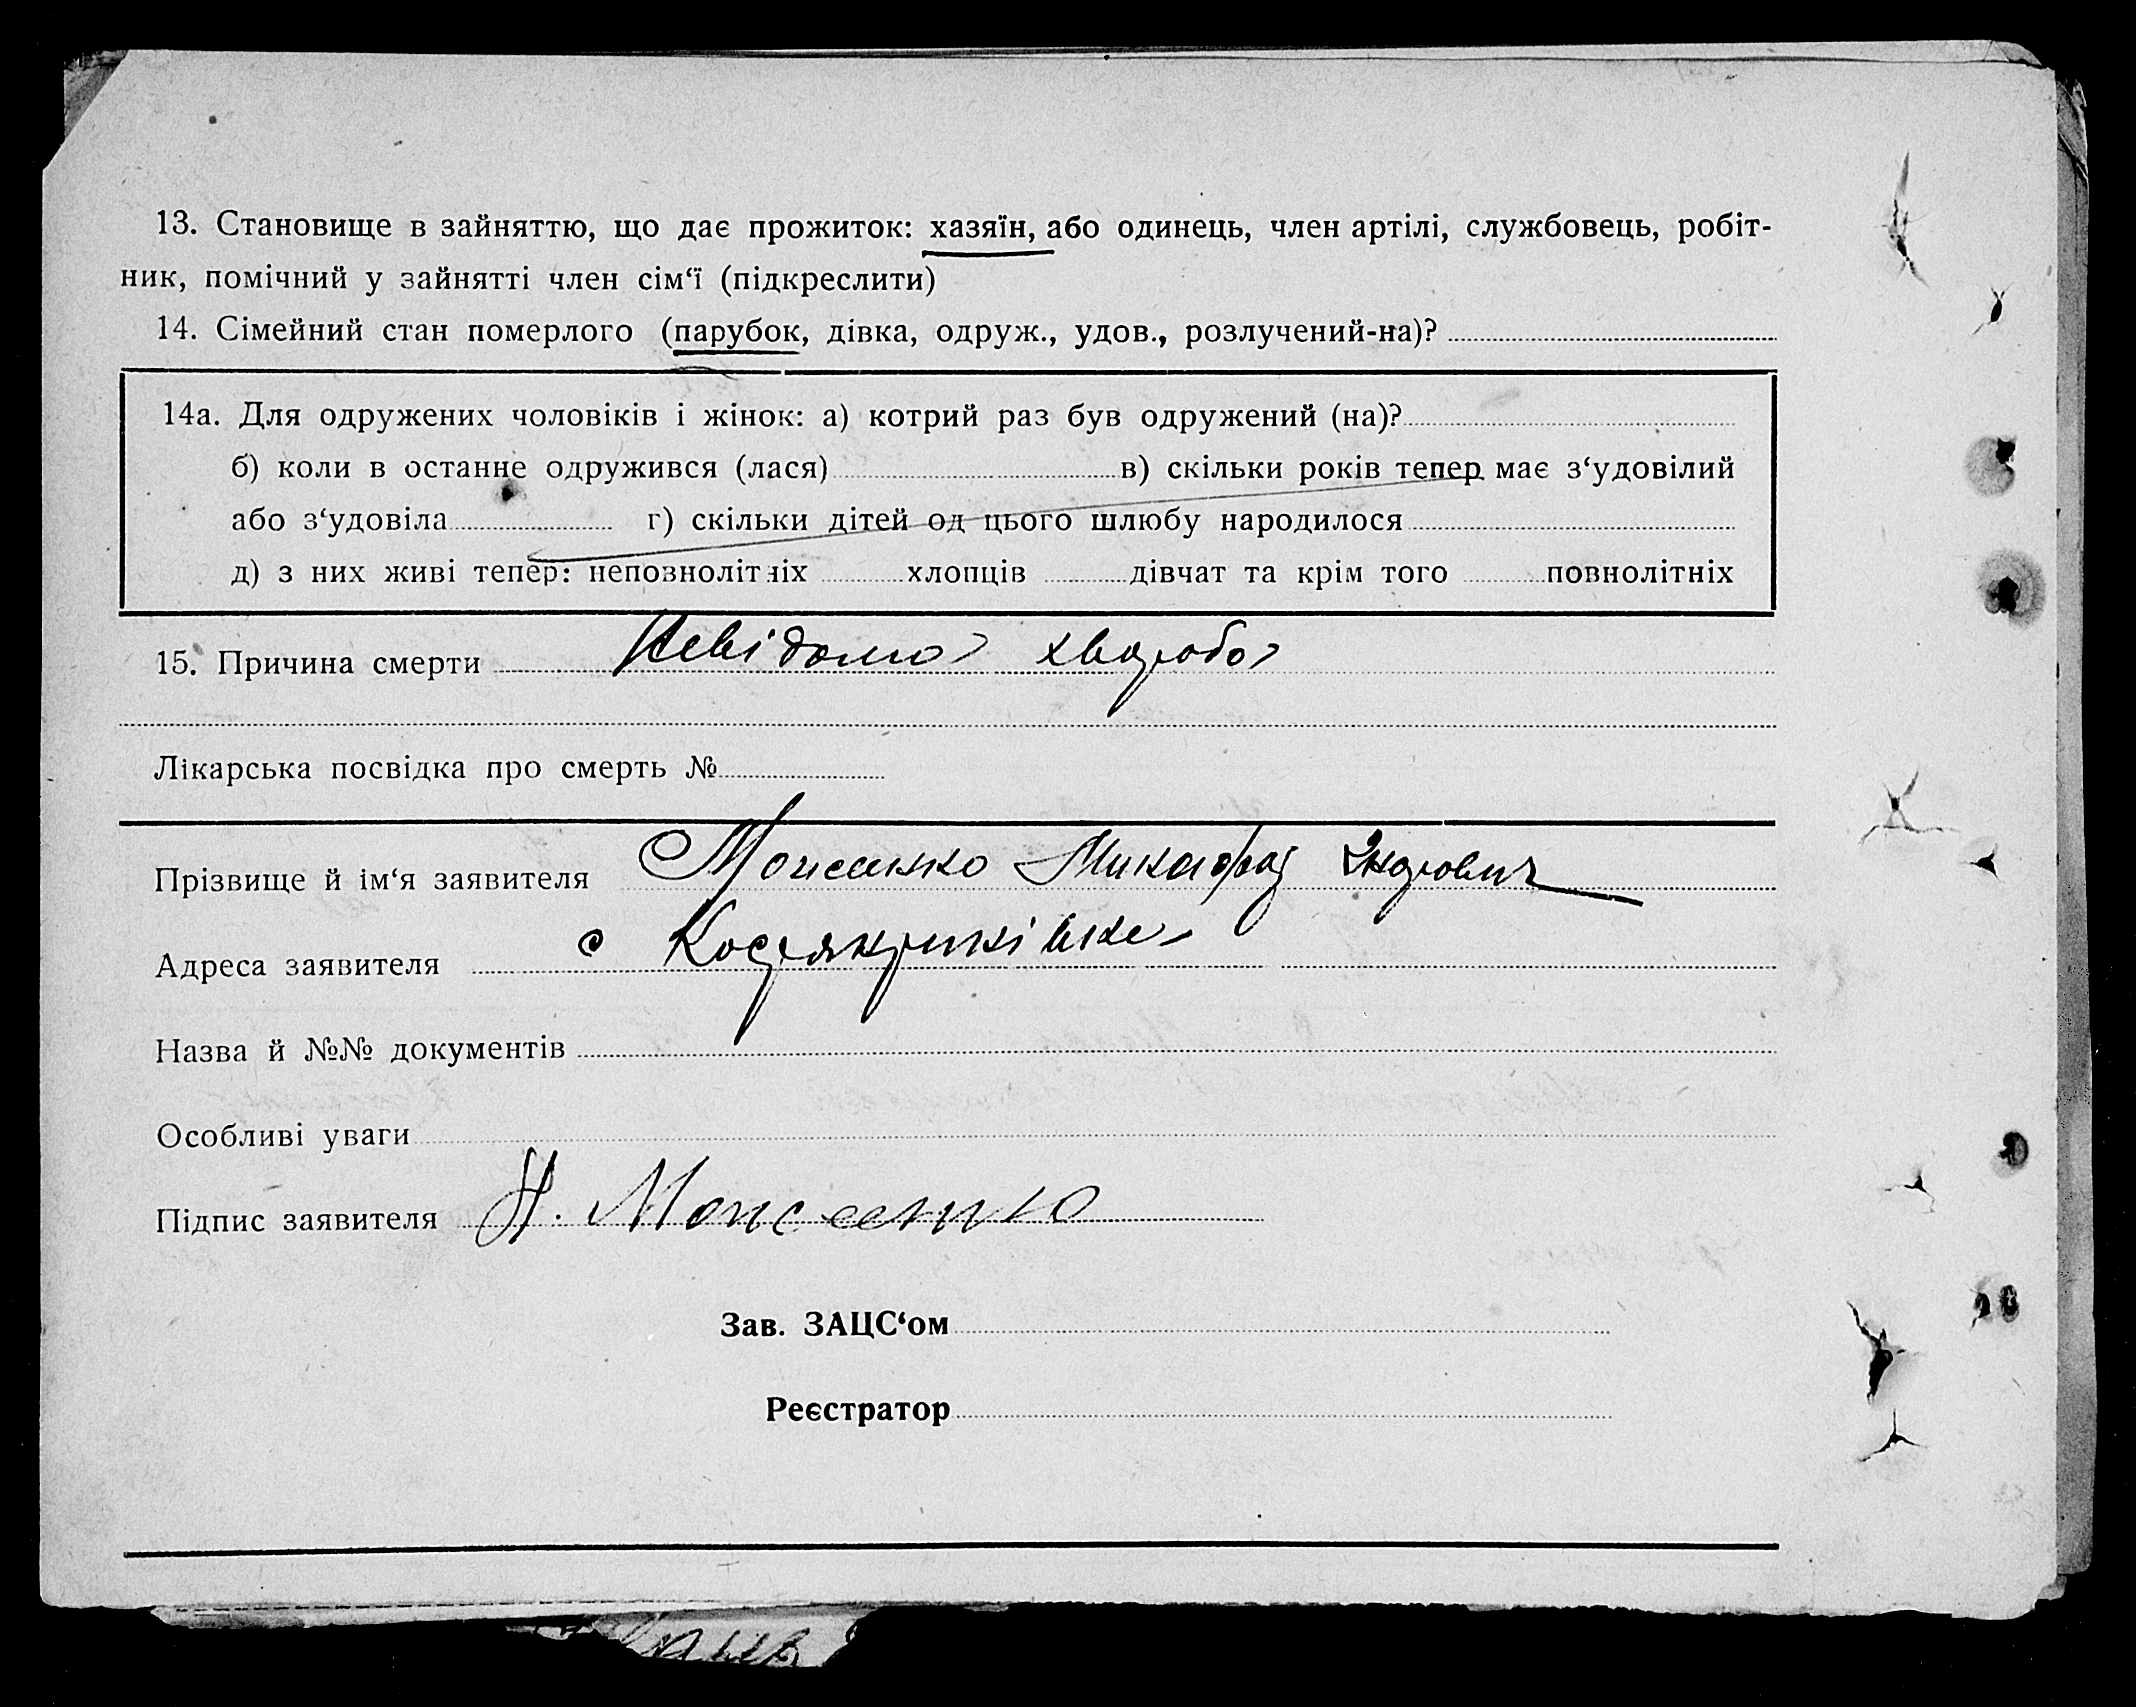 13. Становище в зайняттю, що дає прожиток: хазяїн, або одинець, член артілі, службовець, робіт-
ник, помічний у зайнятті член сім‘ї (підкреслити)
14. Сімейний стан померлого (парубок, дівка, одруж., удов., розлучений-на)?
14а. Для одружених чоловіків і жінок: а) котрий раз був одружений (на)?
б) коли в останнє одружився (лася) в) скільки років тепер має з‘удовілий
або з‘удовіла г) скільки дітей од цього шлюбу народилося
д) з них живі тепер: неповнолітніх хлопців дівчат та крім того повнолітніх
15. Причина смерти Невідома хвороба
Лікарська посвідка про смерть №
Прізвище й ім‘я заявителя Моисеенко
Адреса заявителя с
Назва й №№ документів
Особливі уваги
Підпис заявителя Н. Моисеенко
Зав. ЗАЦС‘ом
Реєстратор